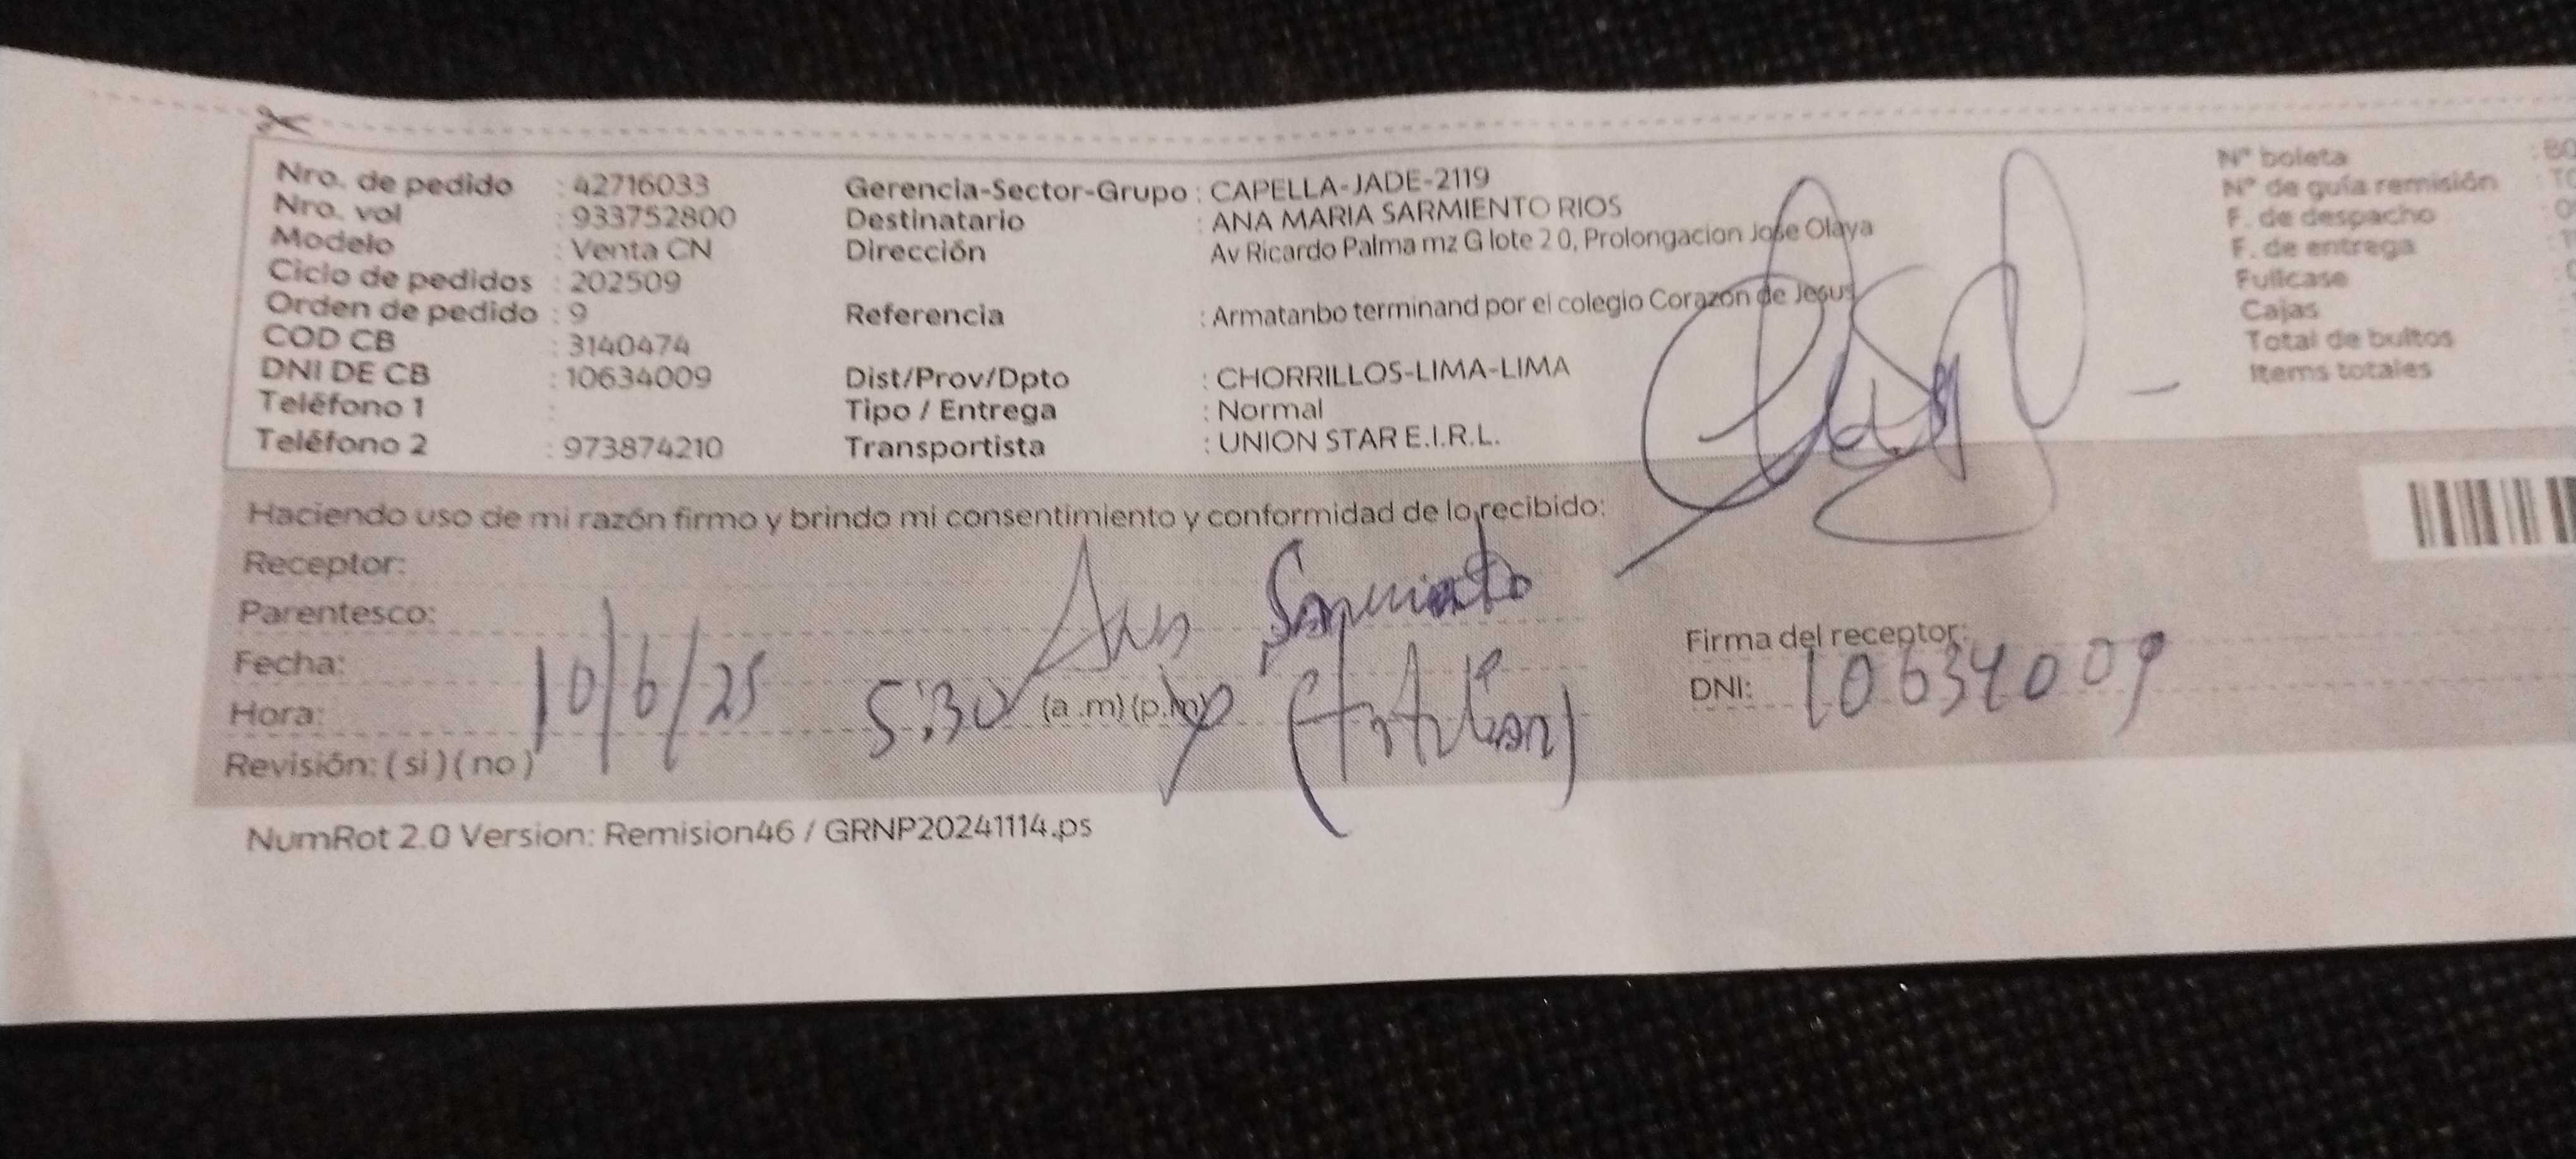 Nro. de pedido : 42716033
Nro. vol : 933752800
Modelo : Venta CN
Ciclo de pedidos : 202509
Orden de pedido : 9
COD CB : 3140474
DNI DE CB : 10634009
Teléfono 1 :
Teléfono 2 : 973874210
Gerencia-Sector-Grupo : CAPELLA-JADE-2119
Destinatario : ANA MARIA SARMIENTO RIOS
Dirección Av Ricardo Palma mz G lote 2 0, Prolongacion Jose Olaya
Referencia : Armatanbo terminand por el colegio Corazon de Jesus
Dist/Prov/Dpto : CHORRILLOS-LIMA-LIMA
Tipo / Entrega : Normal
Transportista : UNION STAR E.I.R.L.
N° boleta
N° de guía remisión
F. de despacho
F. de entrega
Fullcase
Cajas
Total de bultos
Items totales
Haciendo uso de mi razón firmo y brindo mi consentimiento y conformidad de lo recibido:
Receptor:
Parentesco:
Ana Sarmiento
Fecha: 10/6/25
Hora: 5:30 (a .m) (p.m)
Revisión: ( si ) ( no )
Firma del receptor:
DNI: 10634009
NumRot 2.0 Version: Remision46 / GRNP20241114.ps